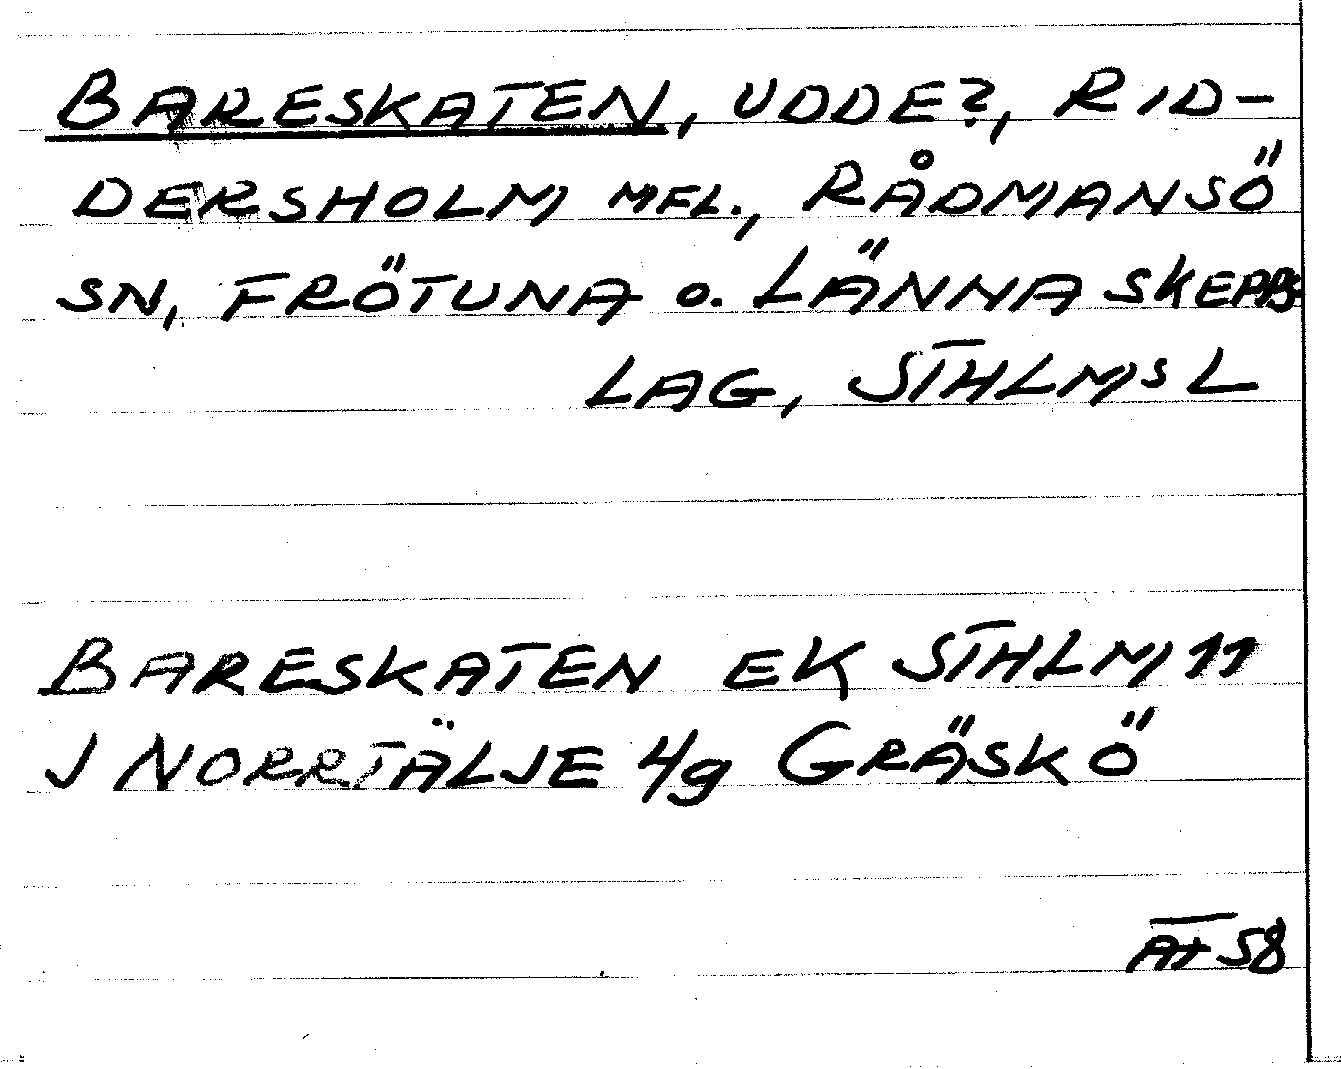 BARESKATEN, UDDE?, RID-
DERSHOLM MFL., RÅDMANSÖ
SN, FRÖTUNA O. LÄNNA SKEPPS
LAG, STHLMS L
BARESKATEN EK STHLM 11
J NORRTÄLJE 4g GRÄSKÖ
AT 58